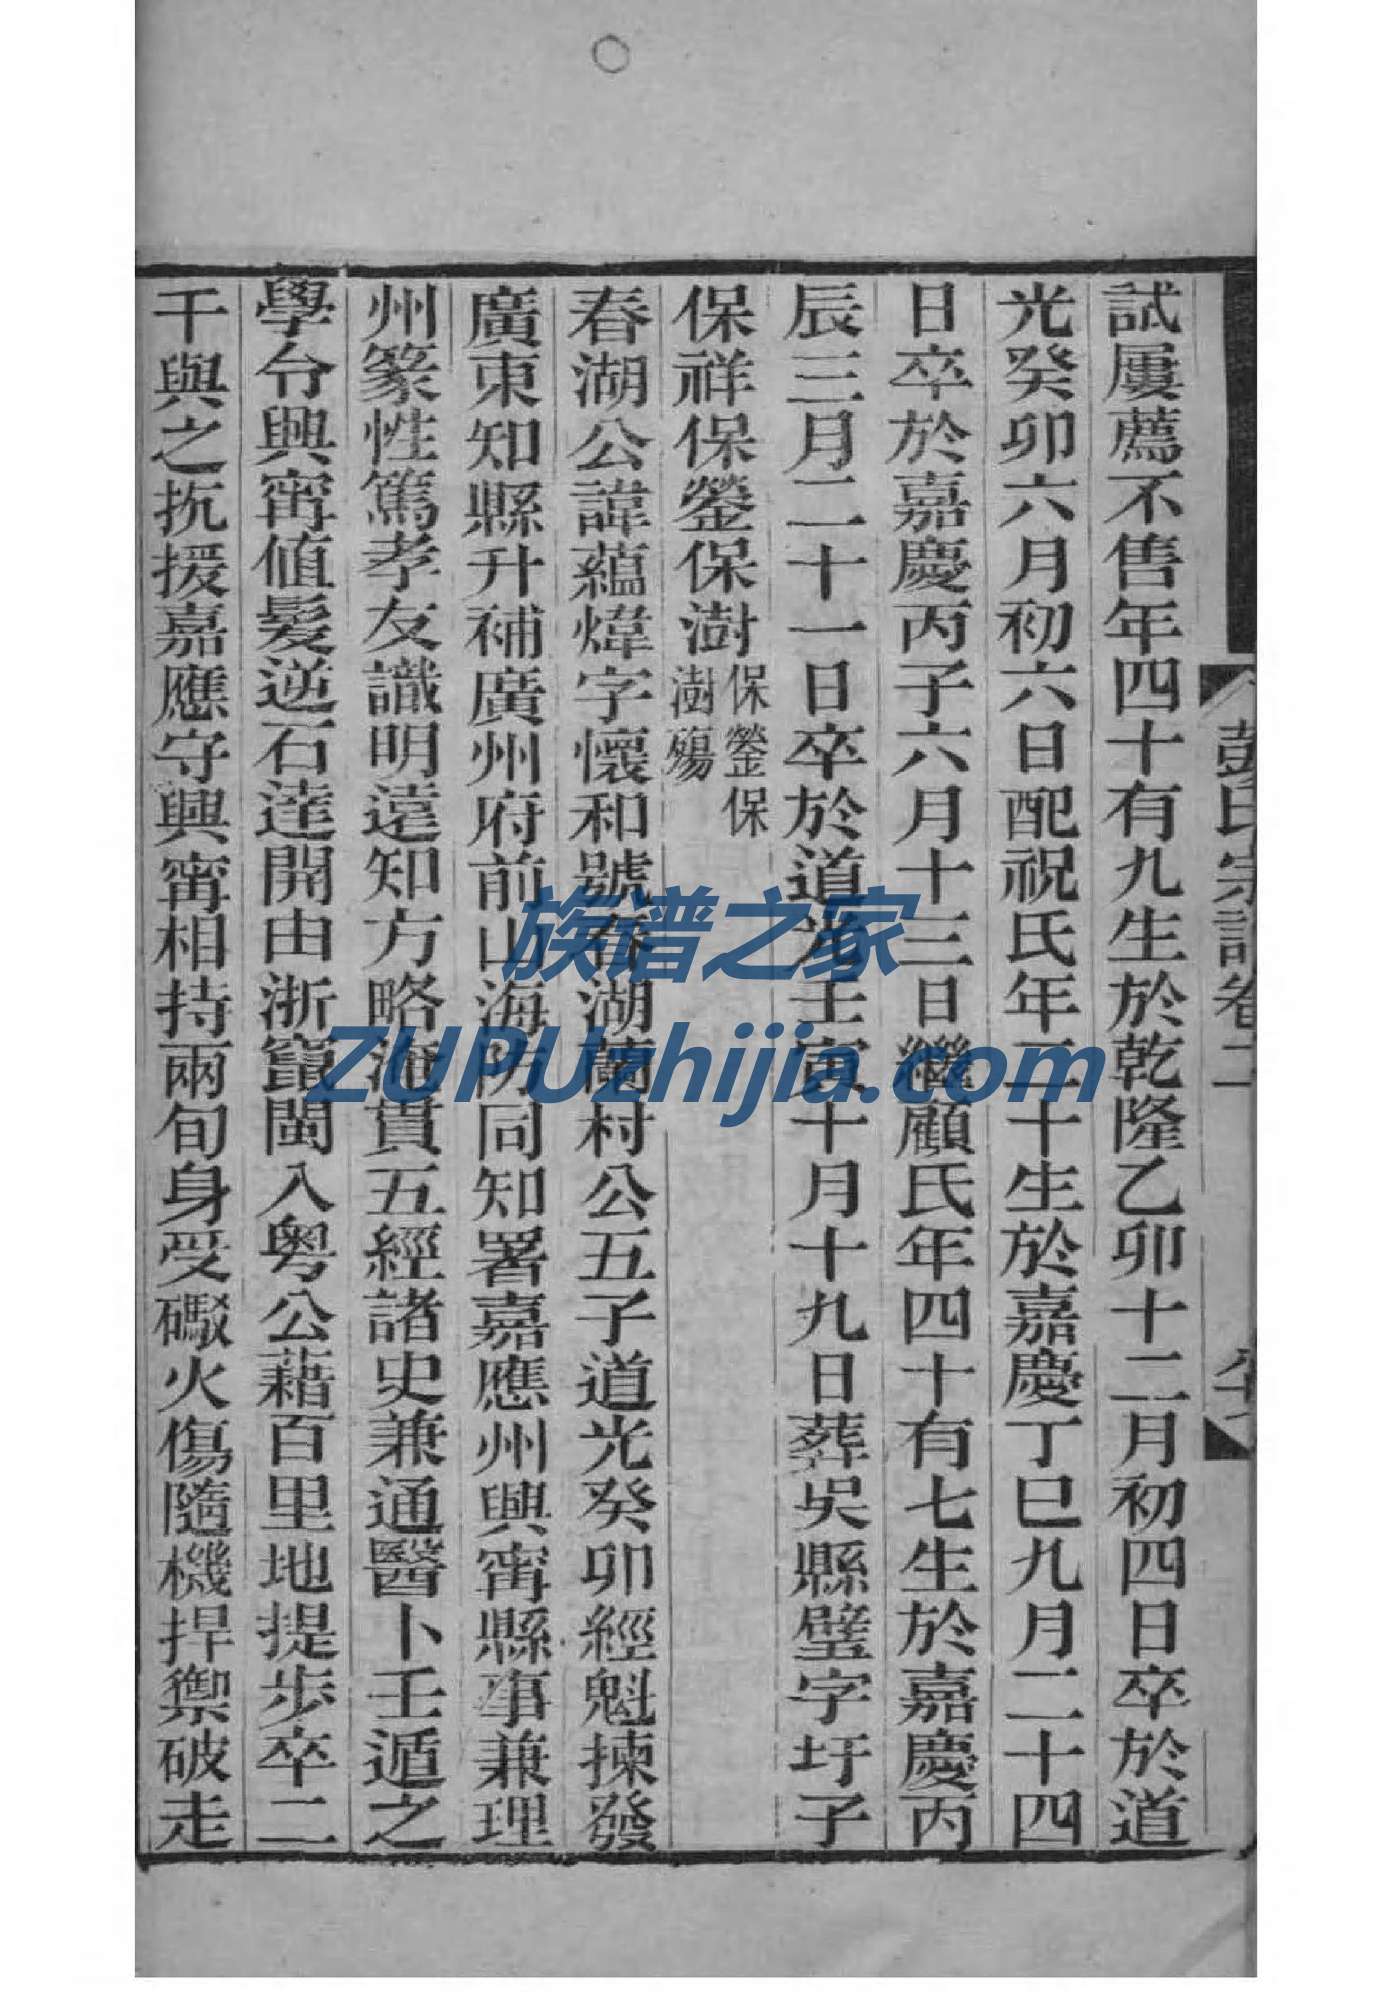 試屢薦不售年四十有九生於乾隆乙卯十二月初四日卒於道
光癸卯六月初六日配祝氏年二十生於嘉慶丁巳九月二十四
日卒於嘉慶丙子六月十三日繼顧氏年四十有七生於嘉慶丙
辰三月二十一日卒於道光壬寅十月十九日葬吳縣璧字圩子
保祥保蓥保澍保蓥保
澍殤
春湖公諱蘊煒字懷和號春湖蘭村公五子道光癸卯經魁揀發
廣東知縣升補廣州府前山海防同知署嘉應州興甯縣事兼理
州篆性篤孝友識明遠知方略淹貫五經諸史兼通醫卜壬遁之
學令興甯值髮逆石達開由浙竄閩入粤公藉百里地提步卒二
千與之抗援嘉應守興甯相持兩旬身受礮火傷隨機捍禦破走
彭氏宗譜卷二
族谱之家
ZUPUzhijia.com